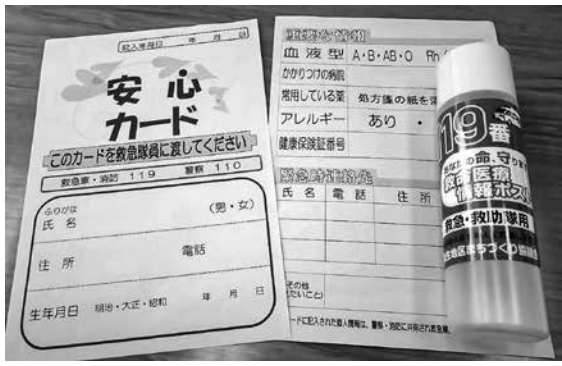 記入年月日 年 月 日
安心
カード
このカードを救急隊員に渡してください
救急車・消防 119 警察 110
ふりがな
氏名 (男・女)
住所 電話
生年月日 明治・大正・昭和 年 月 日
重要な情報
血液型 A・B・AB・O Rh
かかりつけの病院
常用している薬 処方箋の紙を
アレルギー あり ・
健康保険証番号
緊急時連絡先
氏名 電話 住所
その他
たいこと)
ードに記入された個人情報は、警察・消防に共有され救急
19番
あなたの命、守りま
救命医療
情報ポス
救急・救助隊用
地区まちづくり協議会